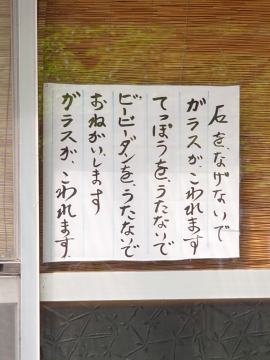 石を、なげないで
ガラスが、こわれます
てっぽうを、うたないで
ビービーダンを、うたないで
おねがいします
ガラスが、こわれます